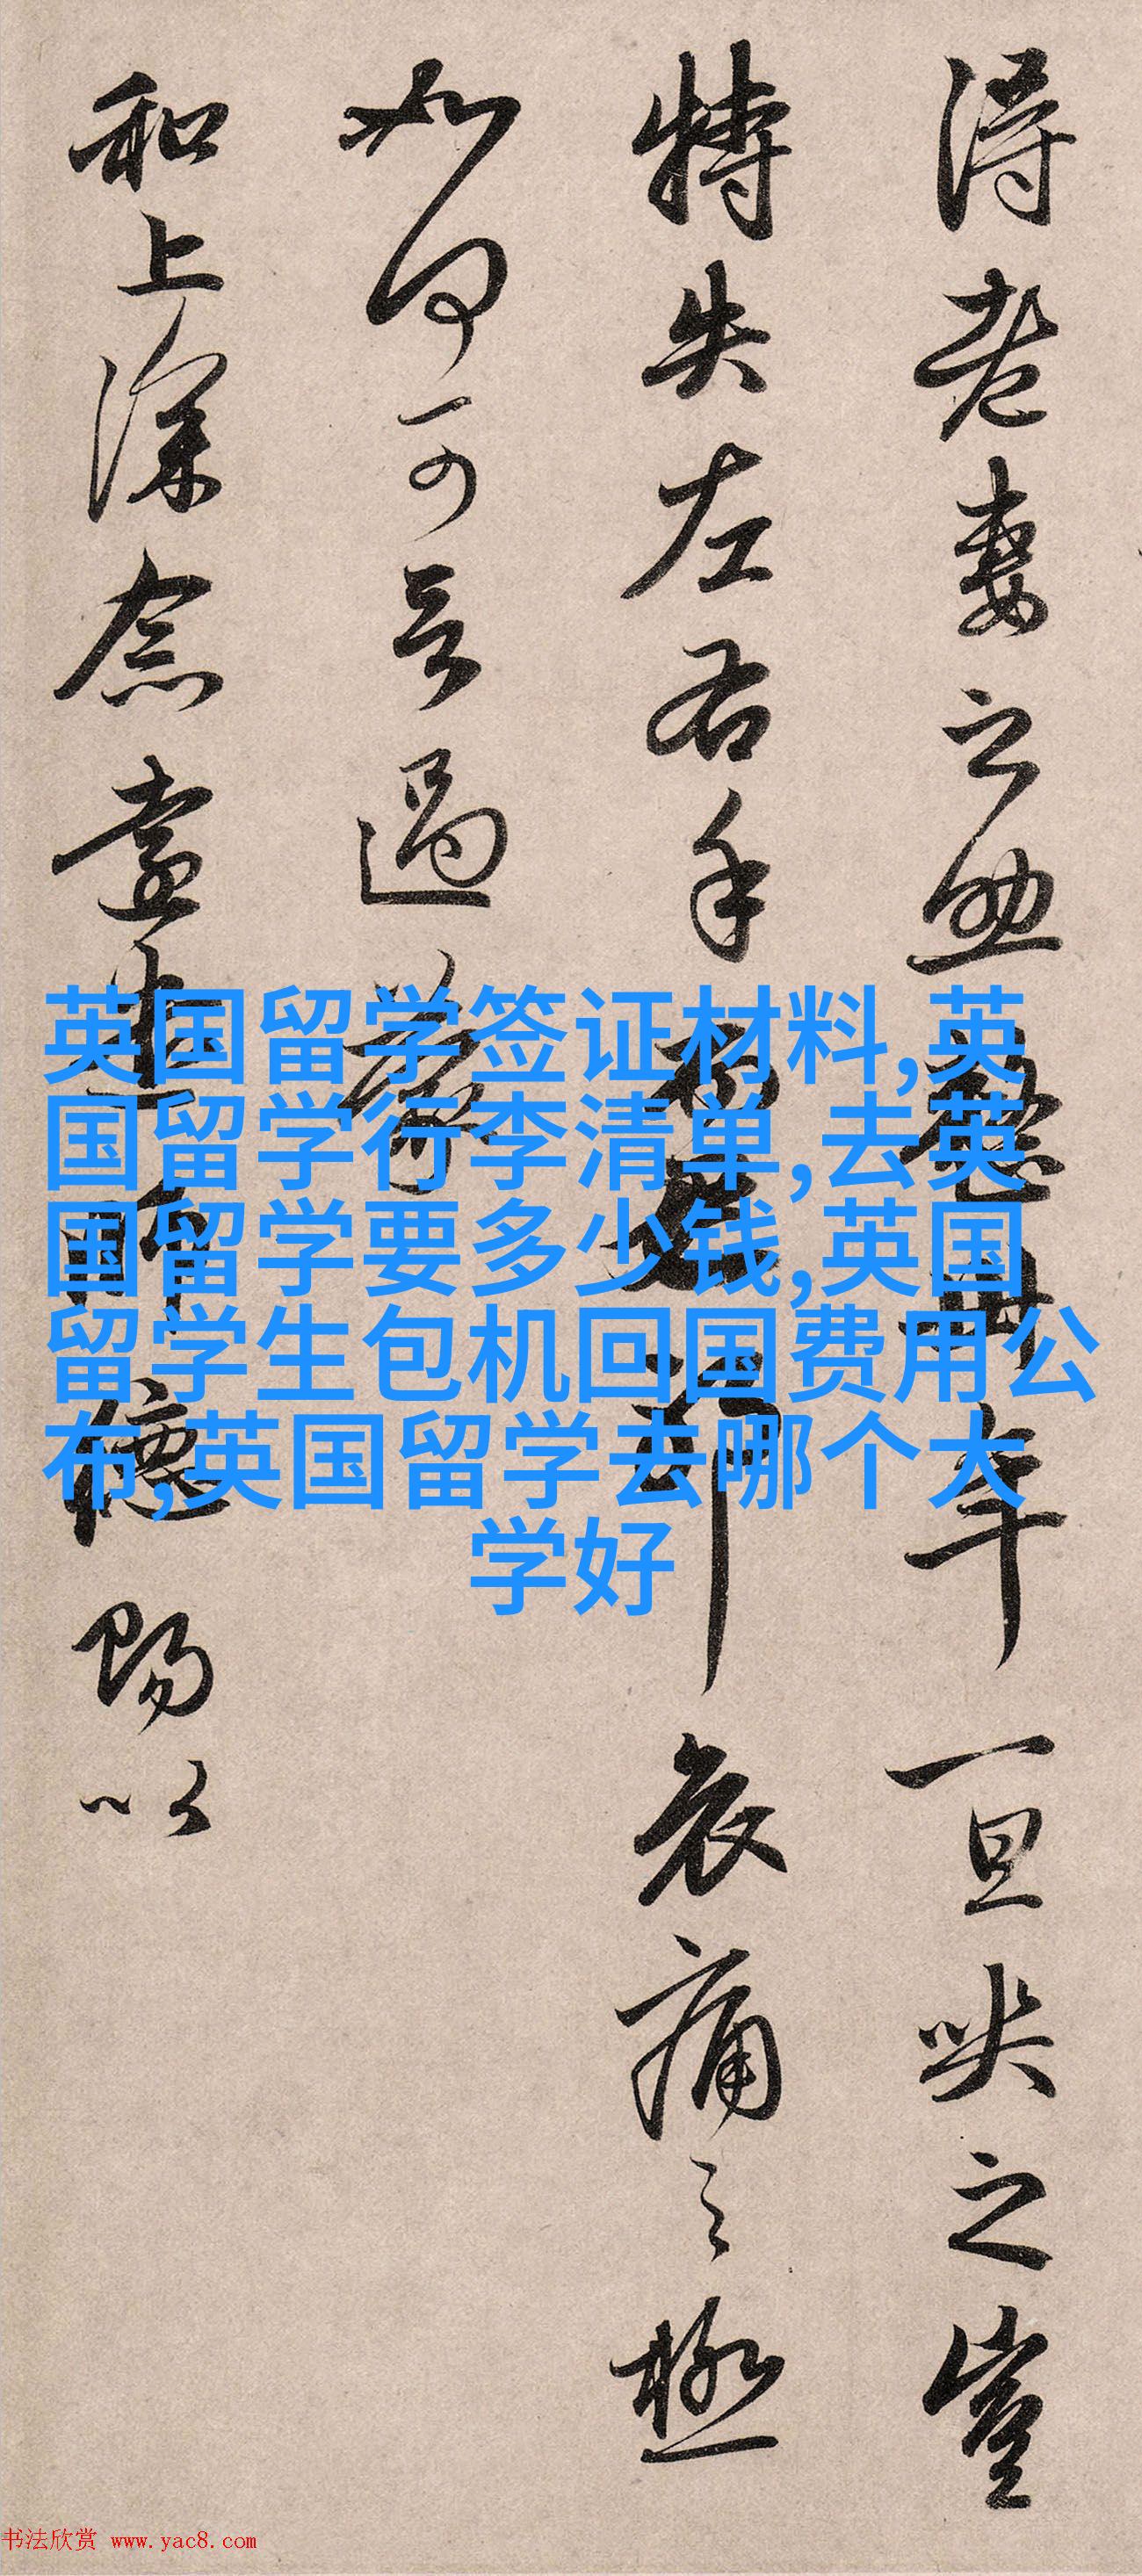 得老妻之助整卅年一旦哭之豈
特失左右手而已耶哀痛之極
如何可言過蒙
和上深念遠遣師德賜以
英国留学签证材料,英
国留学行李清单,去英
国留学要多少钱,英国
留学生包机回国费用公
布,英国留学去哪个大
学好
书法欣赏 www.yac8.com